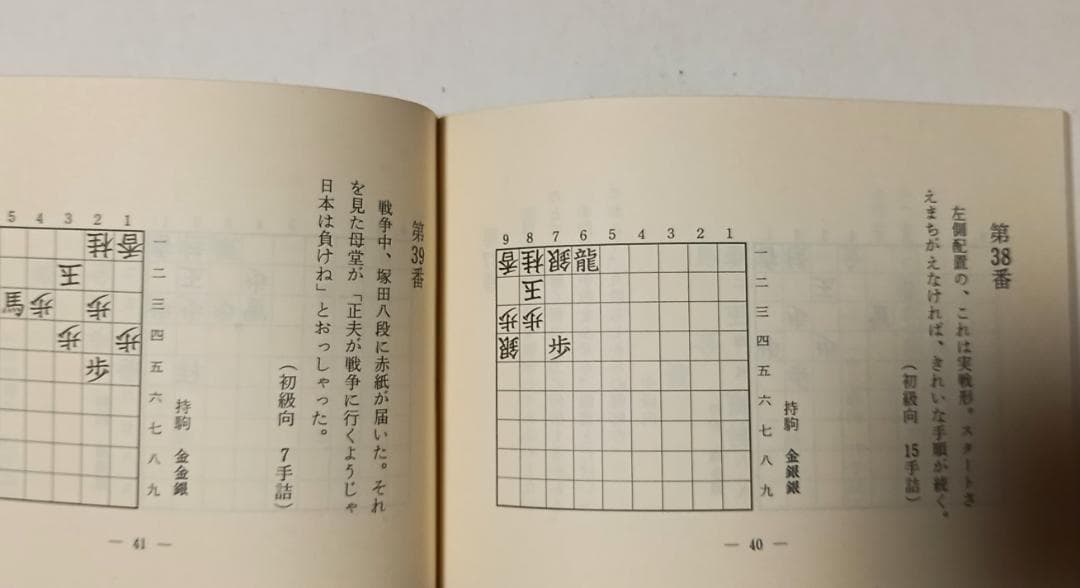 第38番
左側配置の、これは実戦形。スタートさ
えまちがえなければ、きれいな手順が続く。
(初級向 15手詰)
9 8 7 6 5 4 3 2 1
香 桂 銀 龍 一
玉 二
歩 歩 三
銀 歩 四
五
六
七
八
九
持駒 金銀銀
― 40 ―
第39番
戦争中、塚田八段に赤紙が届いた。それ
を見た母堂が、「正夫が戦争に行くようじゃ
日本は負けね」とおっしゃった。
(初級向 7手詰)
5 4 3 2 1
桂 香 一
玉 二
馬 歩 歩 三
歩 歩 四
歩 五
六
七
八
九
持駒 金金銀
― 41 ―